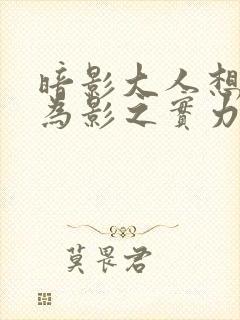 暗影大人想
為影之實力
莫畏君